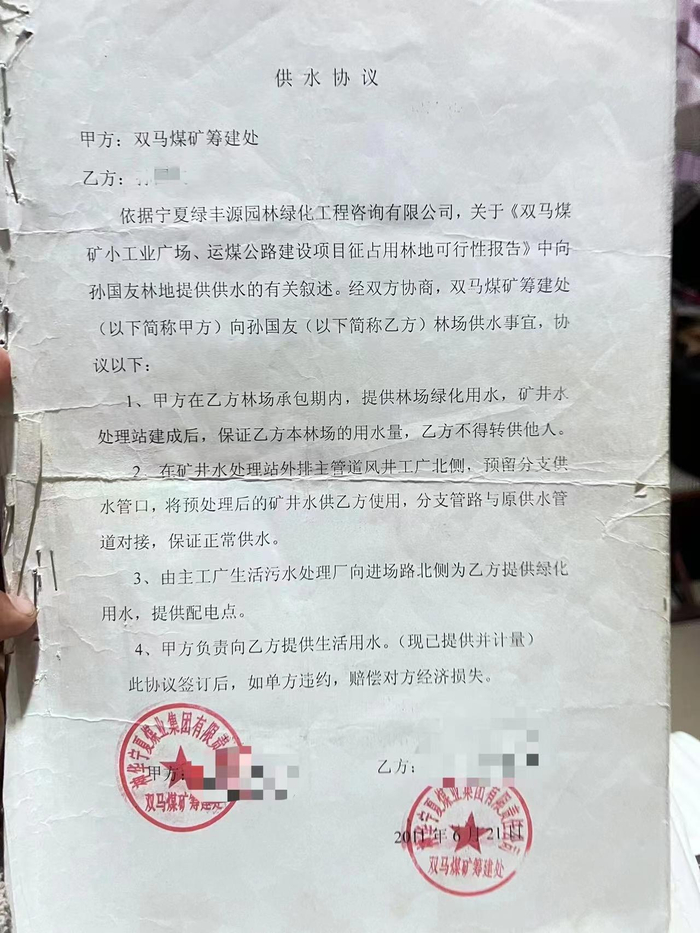 供水协议
甲方：双马煤矿筹建处
乙方：
依据宁夏绿丰源园林绿化工程咨询有限公司，关于《双马煤
矿小工业广场、运煤公路建设项目征占用林地可行性报告》中向
孙国友林地提供供水的有关叙述。经双方协商，双马煤矿筹建处
（以下简称甲方）向孙国友（以下简称乙方）林场供水事宜，协
议以下：
1、甲方在乙方林场承包期内，提供林场绿化用水，矿井水
处理站建成后，保证乙方本林场的用水量，乙方不得转供他人。
2、在矿井水处理站外排主管道风井工广北侧，预留分支供
水管口，将预处理后的矿井水供乙方使用，分支管路与原供水管
道对接，保证正常供水。
3、由主工广生活污水处理厂向进场路北侧为乙方提供绿化
用水，提供配电点。
4、甲方负责向乙方提供生活用水。（现已提供并计量）
此协议签订后，如单方违约，赔偿对方经济损失。
神华宁夏煤业集团有限责
甲方：
双马煤矿筹建处
乙方：
宁夏煤业集团有限责任公司
2011年6月21日
双马煤矿筹建处